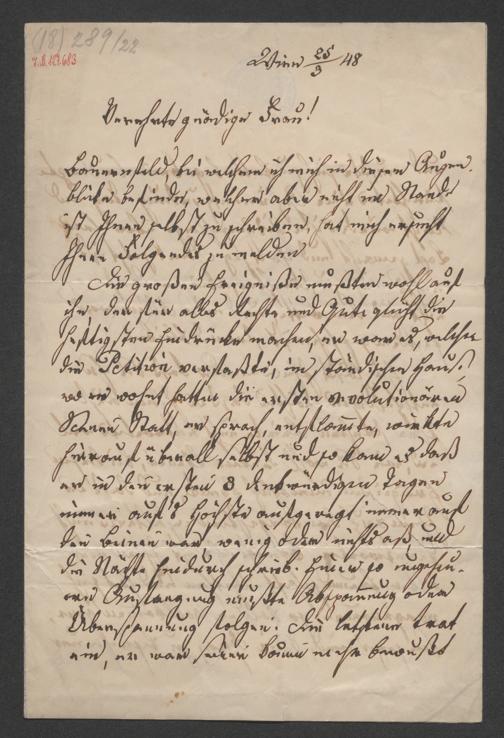 (18) 289/22
I.N. 121.683
Wien 25/3 48
Verehrte gnädige Frau!
Bauernfeld, bei welchem ich mich in diesem Augen-
blicke befinde, welcher aber nicht im Stande
ist Ihnen selbst zu schreiben, hat mich ersucht
Ihnen Folgendes zu melden
Die großen Ereignisse mußten wohl auf
ihn der für alles Rechte und Gute glüht die
heftigsten Eindrücke machen, er war es, welcher
die Petition verfaßte, im ständischen Hause,
wo er wohnt hatten die ersten revolutionären
Scenen Statt, er sprach, entflammte, wirkte
hierauf überall selbst und so kam es daß
er in den ersten 3 denkwürdigen Tagen
immer auf's Höchste aufgeregt immer auf
den Beinen war, wenig oder nichts aß und
die Nächte hindurch schrieb. Einer so ungeheu-
ren Anstrengung mußte Abspannung oder
Überspannung folgen. Die letztere trat
ein, er war seiner kaum mehr bewußt